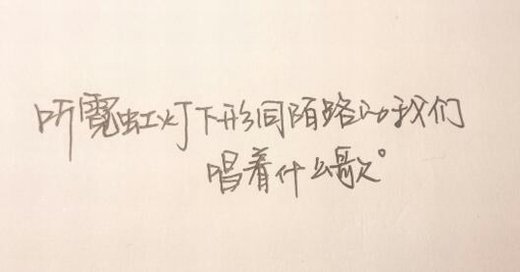 听霓虹灯下形同陌路的我们
唱着什么歌。